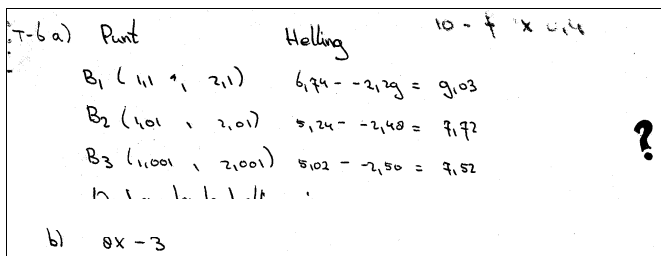 T-6 a) Punt Helling
B1 (1,1 , 2,1) 6,74 - -2,29 = 9,03
B2 (1,01 , 2,01) 5,24 - -2,48 = 7,72
B3 (1,001 , 2,001) 5,02 - -2,50 = 7,52
?
b) 8x - 3